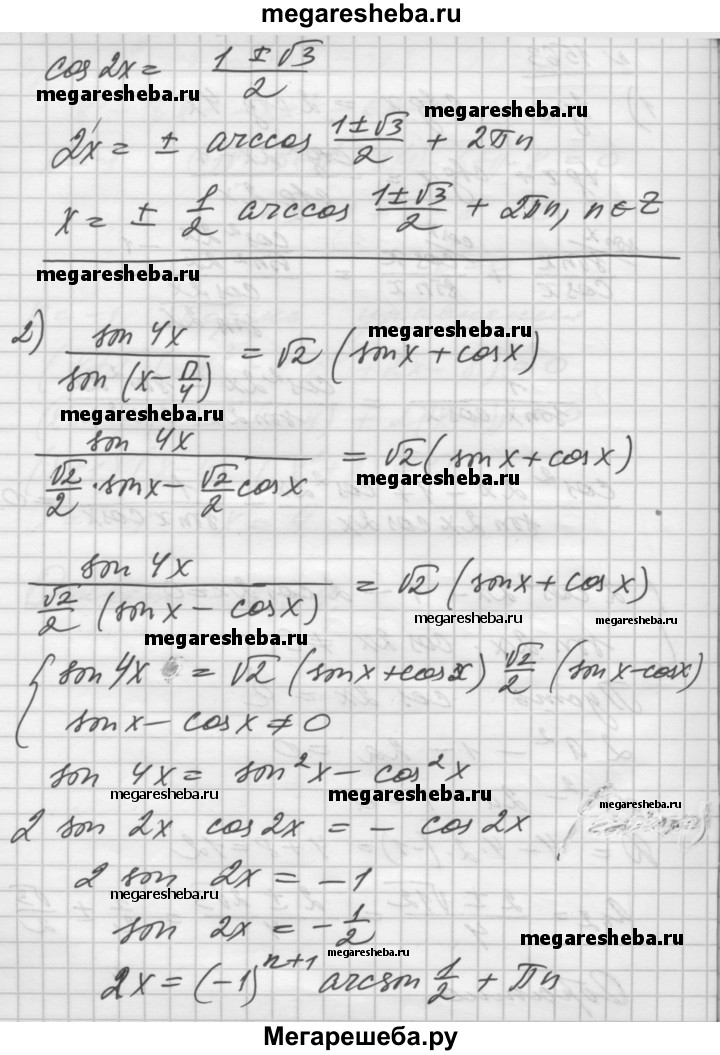 megaresheba.ru
cos 2x = (1 ± √3)/2
megaresheba.ru
megaresheba.ru
2x = ± arccos (1 ± √3)/2 + 2πn
x = ± 1/2 arccos (1 ± √3)/2 + 2πn, n ∈ Z
megaresheba.ru
2) sin 4x / sin (x − π/4) = √2 (sin x + cos x)
megaresheba.ru
megaresheba.ru
sin 4x / (√2/2 · sin x − √2/2 cos x) = √2 (sin x + cos x)
megaresheba.ru
sin 4x / (√2/2 (sin x − cos x)) = √2 (sin x + cos x)
megaresheba.ru
megaresheba.ru
megaresheba.ru
{ sin 4x = √2 (sin x + cos x) √2/2 (sin x − cos x)
sin x − cos x ≠ 0
sin 4x = sin²x − cos²x
megaresheba.ru
megaresheba.ru
megaresheba.ru
2 sin 2x cos 2x = − cos 2x
2 sin 2x = −1
megaresheba.ru
sin 2x = − 1/2
megaresheba.ru
megaresheba.ru
2x = (−1)ⁿ⁺¹ arcsin 1/2 + πn
Мегарешеба.ру